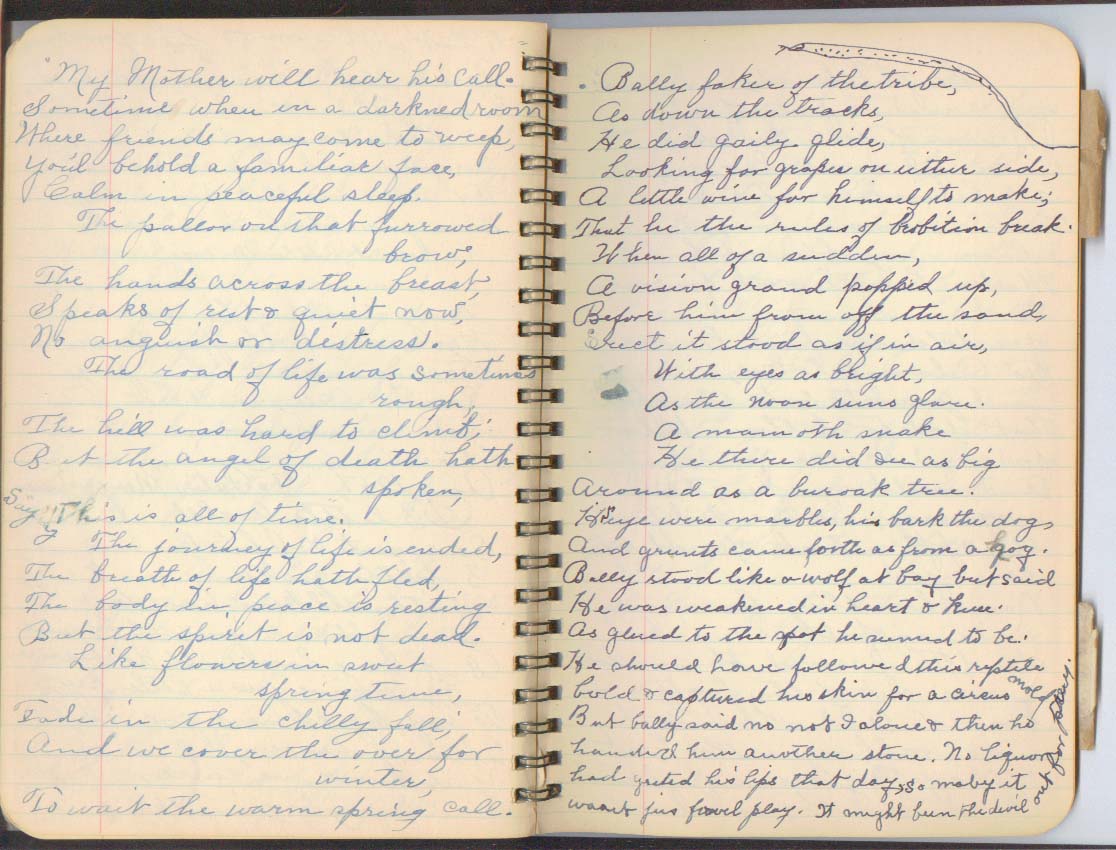 "My Mother will hear his call.
Sometime when in a darkned room
Where friends may come to weep,
You'd behold a familiar face,
Calm in peaceful sleep.
The pallor on that furrowed
brow,
The hands across the breast,
Speaks of rest & quiet now,
No anguish or distress.
The road of life was sometimes
rough,
The hill was hard to climb,
But the angel of death hath
spoken,
Say This is all of time.
The journey of life is ended,
The breath of life hath fled,
The body in peace is resting
But the spirit is not dead.
Like flowers in sweet
spring time,
Fade in the chilly fall,
And we cover the over for
winter,
To wait the warm spring call.
Bally faker of the tribe,
As down the tracks,
He did gaily glide,
Looking for grapes on either side,
A little wine for himself to make;
That he the rules of brobition break.
When all of a sudden,
A vision grand popped up,
Before him from off the sand,
Erect it stood as if in air,
With eyes as bright,
As the noon suns glare.
A mamoth snake
He there did see as big
Around as a buroak tree.
His eye were marbles, his bark the dogs,
And grunts came forth as from a hog.
Bally stood like a wolf at bay but said
He was weakened in heart & knee.
As glued to the spot he seemed to be.
He should have followed this reptile
bold & captured his skin for a circus
But bally said no not I alone & then he
handed him another stone. No liquor
had greted his lips that day, so maby it
waant jus fowl play. It might been the devil
out for pay.